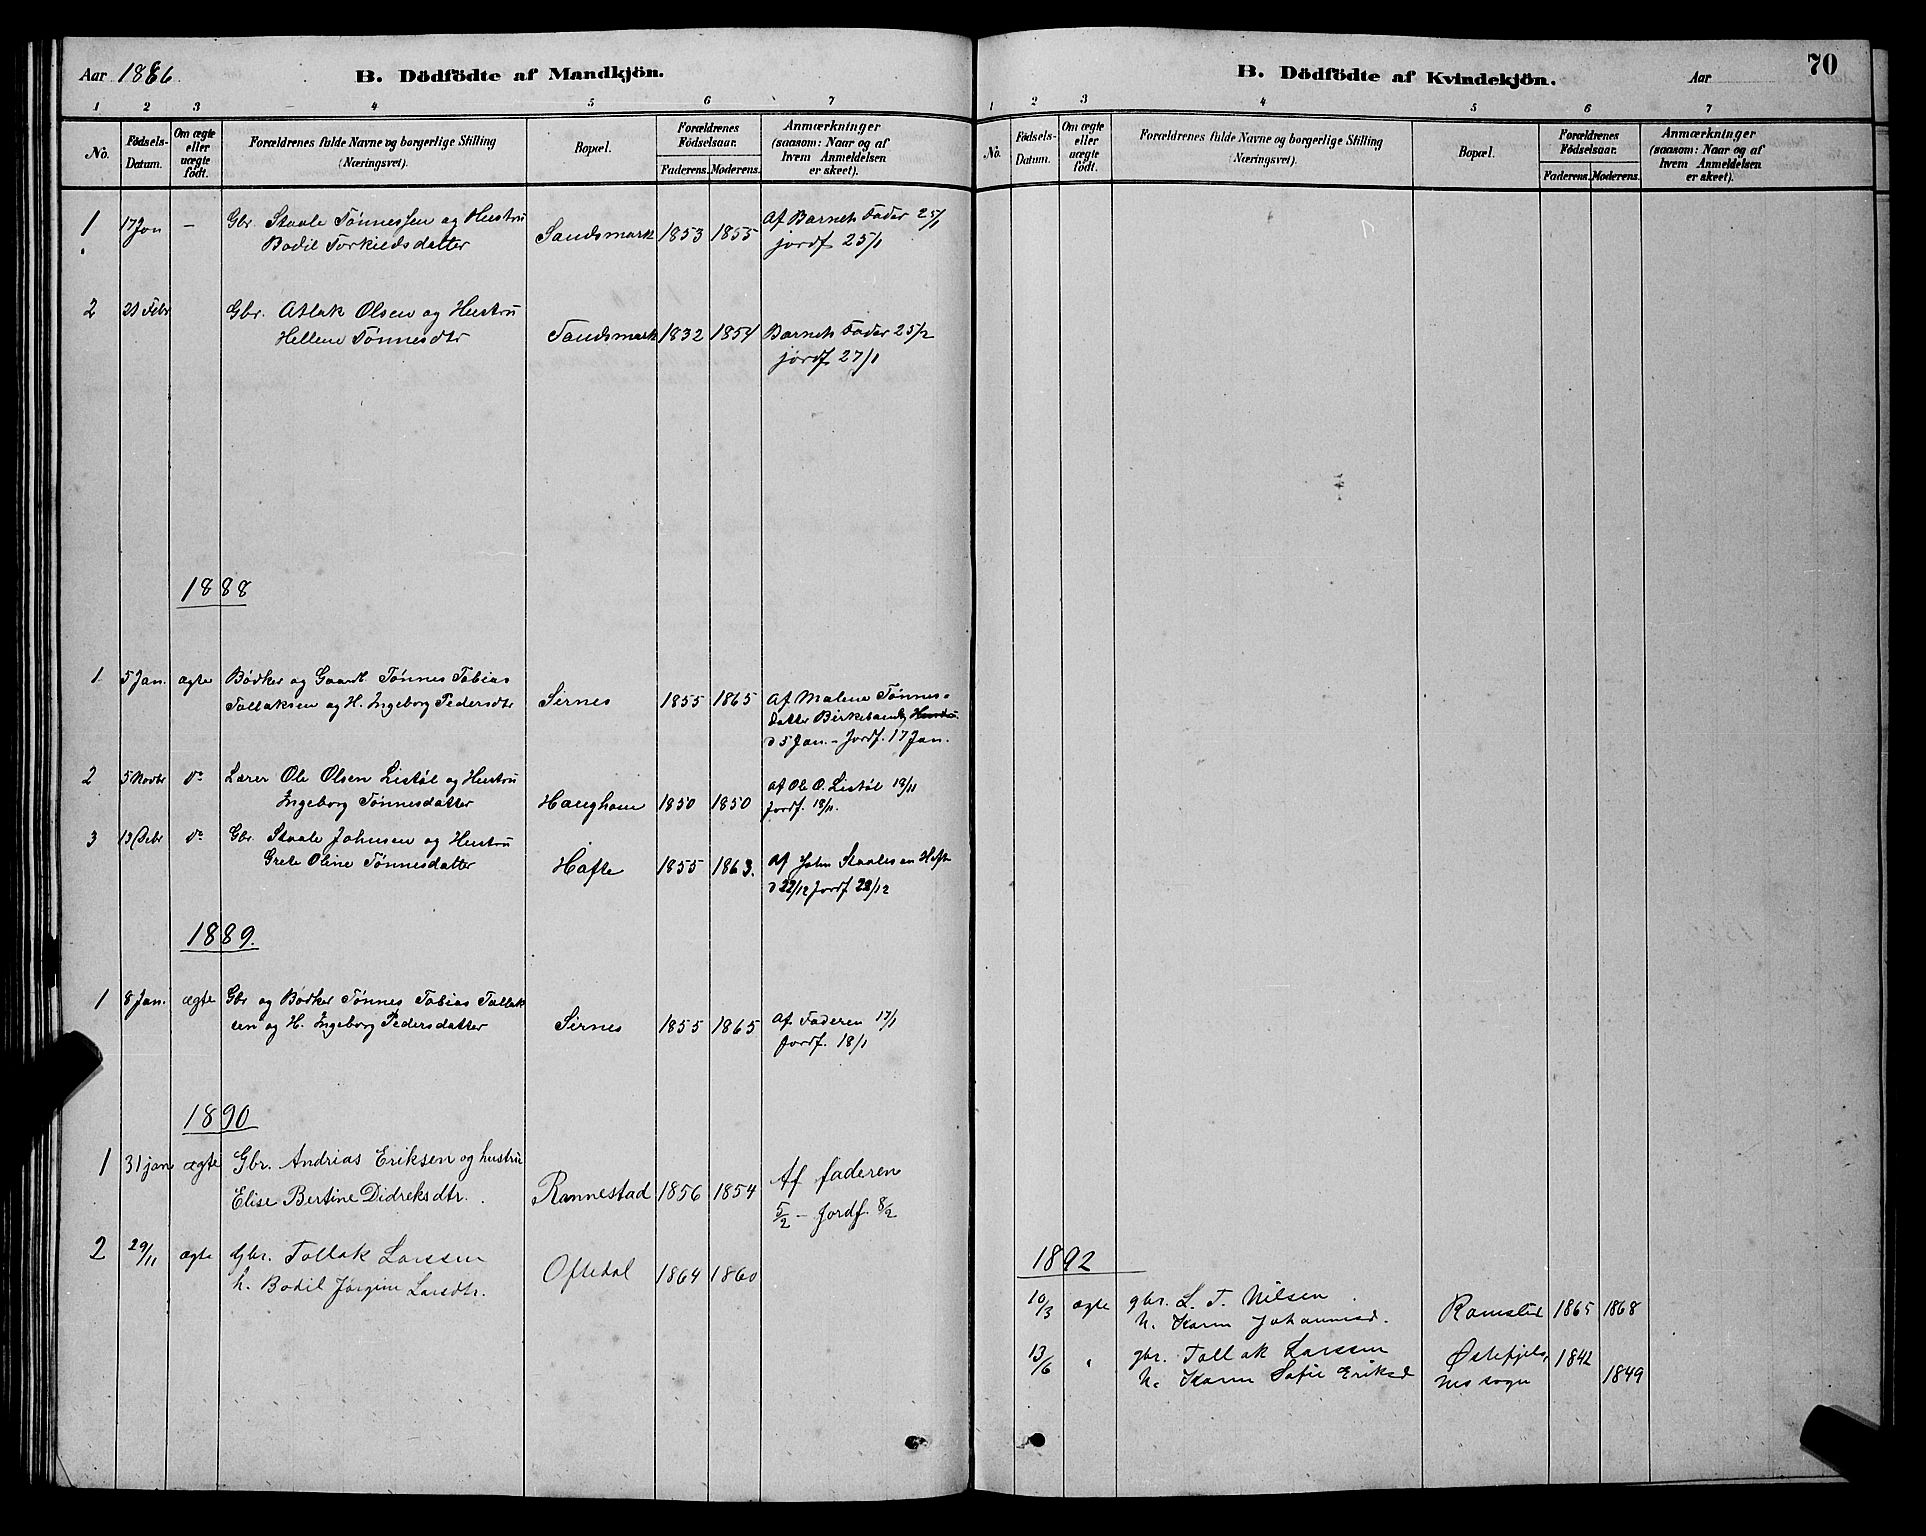 Aar 1886.
B. Dödfödte af Mandkjön.
1 2 3 4 5 6 7
No.
Fødsels-Datum.
Om ægte eller uægte født.
Forældrenes fulde Navne og borgerlige Stilling (Næringsvei).
Bopæl.
Forældrenes Fødselsaar.
Faderens. Moderens.
Anmærkninger (saasom: Naar og af hvem Anmeldelsen er skeet).
1 17 Jan - Gbr. Staale Tønnessen og Hustru Af Barnets Fader 25/1
Bodil Torkildsdatter Sandsmark 1853 1855 jordf 25/1
2 21 Febr Gbr. Atlak Olsen og Hustru
Hellene Tønnesdtr Sandsmark 1832 1854 Barnets Fader 25/2
jordf 27/1
1888
1 5 Jan. ægte Bødker og Gaardb. Tønnes Tobias
Tollaksen og H. Ingeborg Pedersdtr Sirnes 1855 1865 af Malene Tønnes-
datter Birkeland
d 5 Jan. - Jordf. 17 Jan.
2 5 Novbr do Lærer Ole Olsen Listøl og Hustru af Ole O. Listøl 19/11
Ingeborg Tønnesdatter Haughom 1850 1850 Jordf. 18/11.
3 13 Debr do Gbr. Staale Johnsen og Hustru
Grete Oline Tønnesdatter Hafte 1855 1863. af John Staalesen Hafte
d 22/12 Jordf 22/12
1889.
1 8 Jan. ægte Gbr og Bødker Tønnes Tobias Tollak
sen og H. Ingeborg Pedersdatter Sirnes 1855 1865 af Faderen 17/1
Jordf. 18/1
1890
1 31 jan ægte Gbr. Andrias Eriksen og hustru Af faderen
Elise Bertine Didreksdtr. Rannestad 1856 1854 5/2 - Jordf. 8/2
2 29/11 ægte Gbr. Tollak Larssen
h. Bodil Jørgine Larsdtr. Oftedal 1864 1860
B. Dödfödte af Kvindekjön.
Aar
70
1 2 3 4 5 6 7
No.
Fødsels-Datum.
Om ægte eller uægte født.
Forældrenes fulde Navne og borgerlige Stilling (Næringsvei).
Bopæl.
Forældrenes Fødselsaar.
Faderens. Moderens.
Anmærkninger (saasom: Naar og af hvem Anmeldelsen er skeet).
1892
10/3 ægte gbr. L. T. Nilsen
h. Karen Johannesd. 1865 1868
13/6 " gbr. Tollak Larssen 1842
h. Karen Sofie Eriksd nes sogn 1849